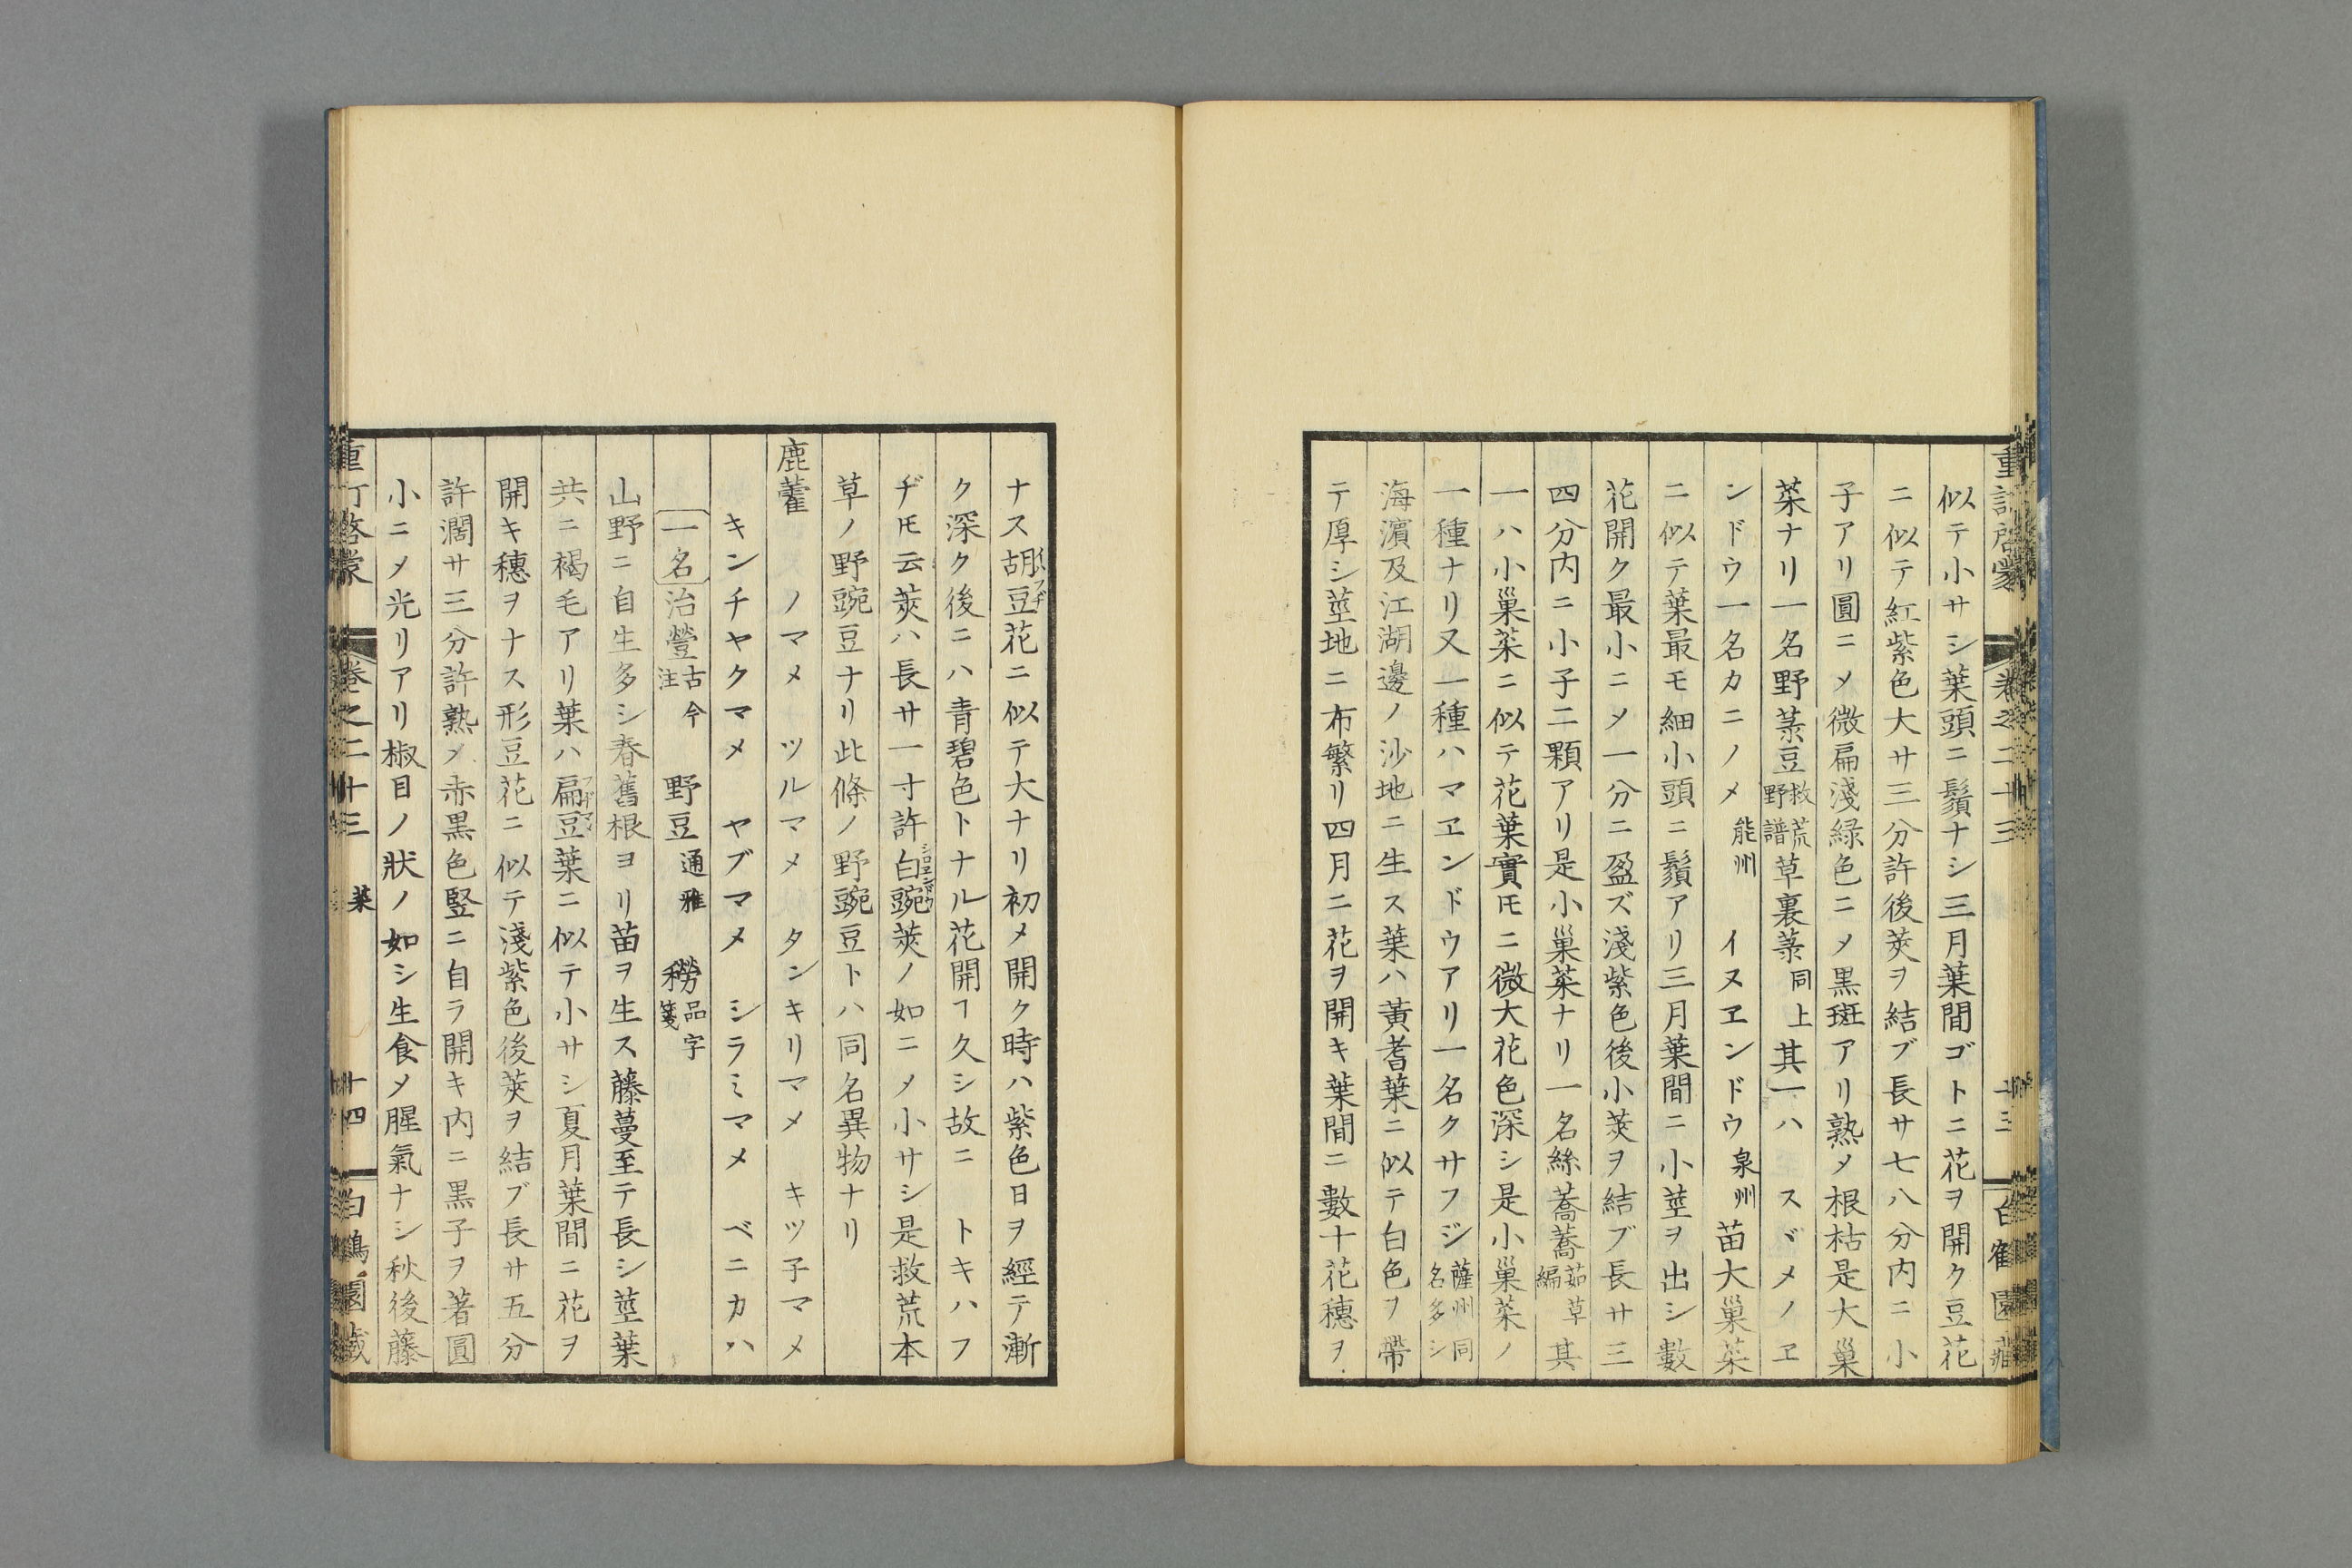 似テ小サシ葉頭ニ鬚ナシ三月葉間ゴトニ花ヲ開ク豆花
ニ似テ紅紫色大サ三分許後莢ヲ結ブ長サ七八分内ニ小
子アリ圓ニメ微扁淺緑色ニメ黒斑アリ熟メ根枯是大巢
菜ナリ一名野菉豆救荒野譜草裏菉同上其一ハ スヾメノヱ
ンドウ一名カニノメ能州 イヌヱンドウ泉州苗大巢菜
ニ似テ葉最モ細小頭ニ鬚アリ三月葉間ニ小莖ヲ出シ數
花開ク最小ニメ一分ニ盈ズ淺紫色後小莢ヲ結ブ長サ三
四分内ニ小子二顆アリ是小巢菜ナリ一名絲蕎蕎茹草編其
一ハ小巢菜ニ似テ花葉實𪜈ニ微大花色深シ是小巢菜ノ
一種ナリ又一種ハマヱンドウアリ一名クサフジ薩州同名多シ
海濵及江湖邊ノ沙地ニ生ス葉ハ黃耆葉ニ似テ白色ヲ帶
テ厚シ莖地ニ布繁リ四月ニ花ヲ開キ葉間ニ數十花穗ヲ
ナス胡豆花ニ似テ大ナリ初メ開ク時ハ紫色日ヲ經テ漸
ク深ク後ニハ青碧色トナル花開ヿ久シ故ニ トキハフ
ヂ𪜈云莢ハ長サ一寸許白豌莢ノ如ニメ小サシ是救荒本
草ノ野豌豆ナリ此條ノ野豌豆トハ同名異物ナリ
鹿藿 ノマメ ツルマメ タンキリマメ キツ子マメ
キンチヤクマメ ヤブマメ シラミマメ ベニカハ
一名 治䝁古今注 野豆通雅 䝁品字箋
山野ニ自生多シ春舊根ヨリ苗ヲ生ス藤蔓至テ長シ莖葉
共ニ褐毛アリ葉ハ扁豆葉ニ似テ小サシ夏月葉間ニ花ヲ
開キ穗ヲナス形豆花ニ似テ淺紫色後莢ヲ結ブ長サ五分
許濶サ三分許熟メ赤黒色竪ニ自ラ開キ内ニ黒子ヲ著圓
小ニメ光リアリ椒目ノ狀ノ如シ生食メ腥氣ナシ秋後藤
重訂啓蒙 卷之二十三 菜 十四